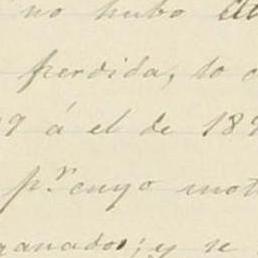 no hubo
perdida, lo
9 á el de 189
p.r cuyo mot
ranados; y se